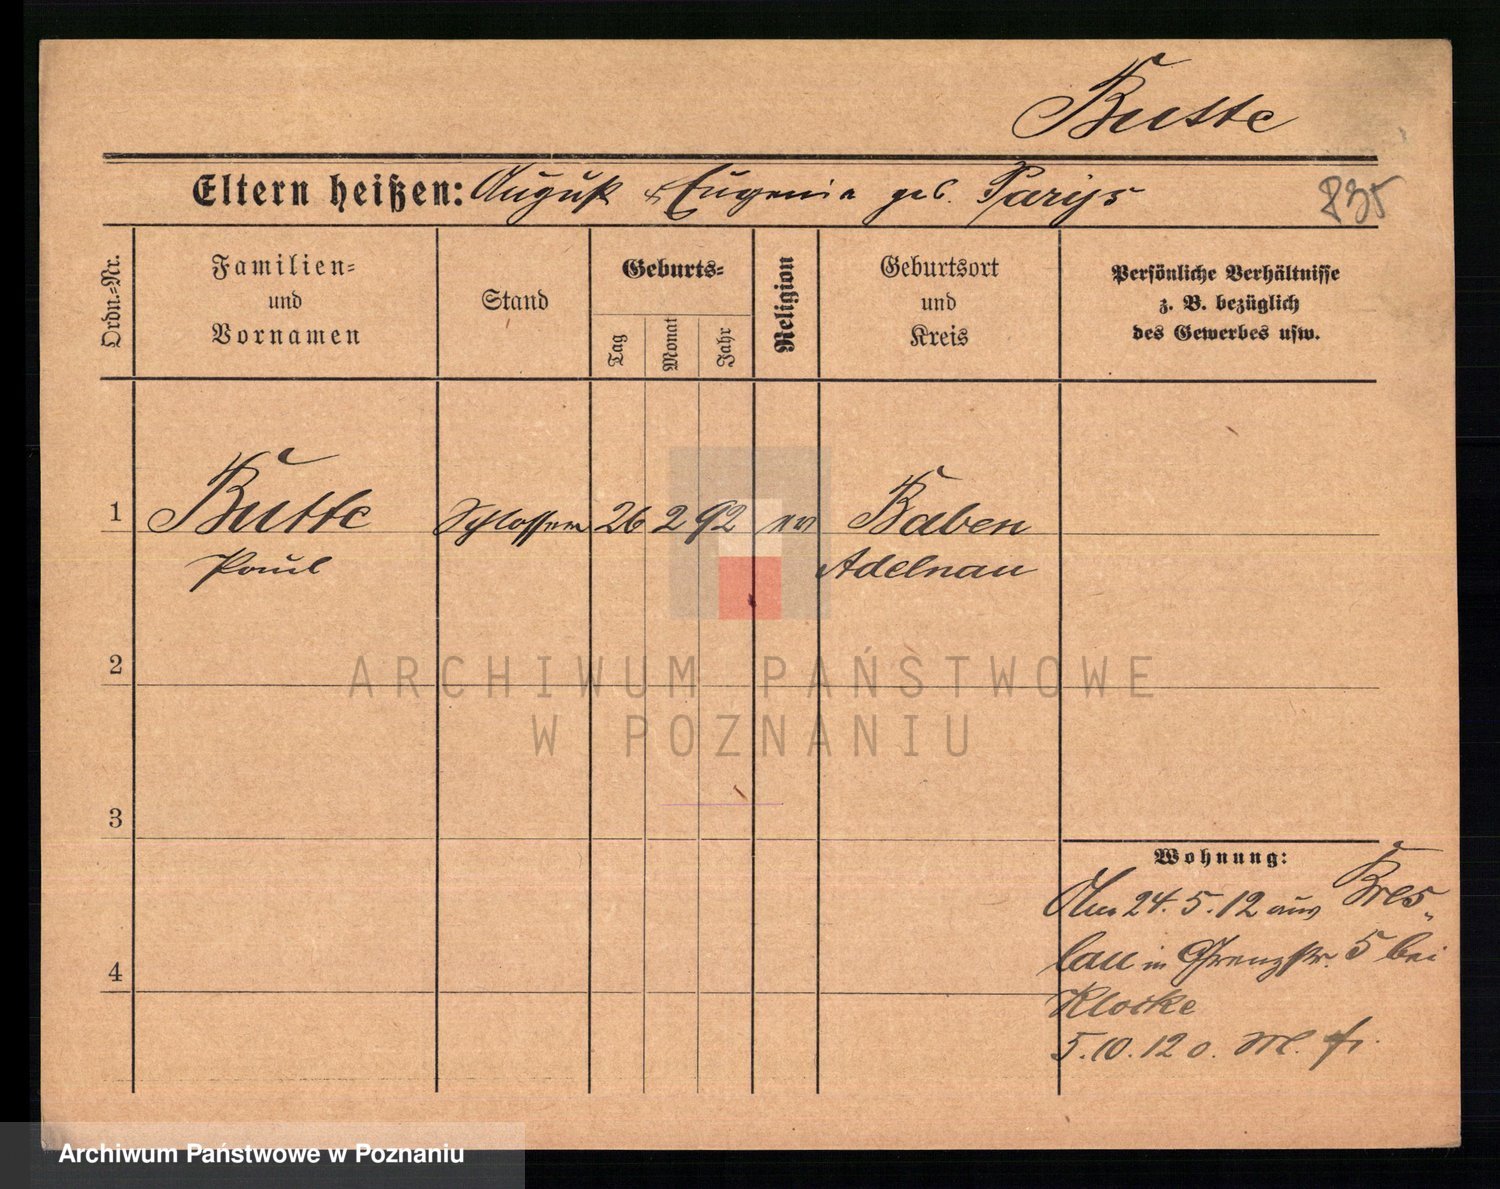 Butte
Eltern heißen: August & Eugenia geb. Parijs
835
Ordn.-Nr.
Familien-
und
Vornamen
Stand
Geburts-
Tag
Monat
Jahr
Religion
Geburtsort
und
Kreis
Persönliche Verhältnisse
z. B. bezüglich
des Gewerbes usw.
1
Butte Schlosser 26 2 92 ev Baben
Paul Adelnau
2
ARCHIWUM PAŃSTWOWE
W POZNANIU
3
Wohnung:
24.5.12 aus Bres-
lau in Grenzstr. 5 bei
4
Klotke
5.10.12 o.
Archiwum Państwowe w Poznaniu